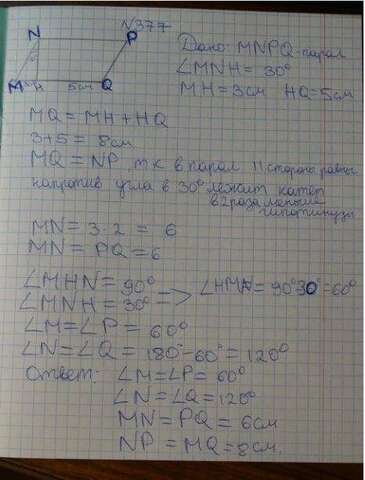 N377
N P
M H 5см Q
Дано: MNPQ-парал
∠MNH = 30°
MH = 3см HQ = 5см
MQ = MH + HQ
3+5 = 8см
MQ = NP, т к в парал 11 стороны равны
напротив угла в 30° лежит катет
в 2 раза меньше
гипотинузы
MN = 3·2 = 6
MN = PQ = 6
∠MHN = 90°
∠MNH = 30° => ∠HMN = 90°30° = 60°
∠M = ∠P = 60°
∠N = ∠Q = 180° - 60° = 120°
Ответ: ∠M = ∠P = 60°
∠N = ∠Q = 120°
MN = PQ = 6см
NP = MQ = 8см.